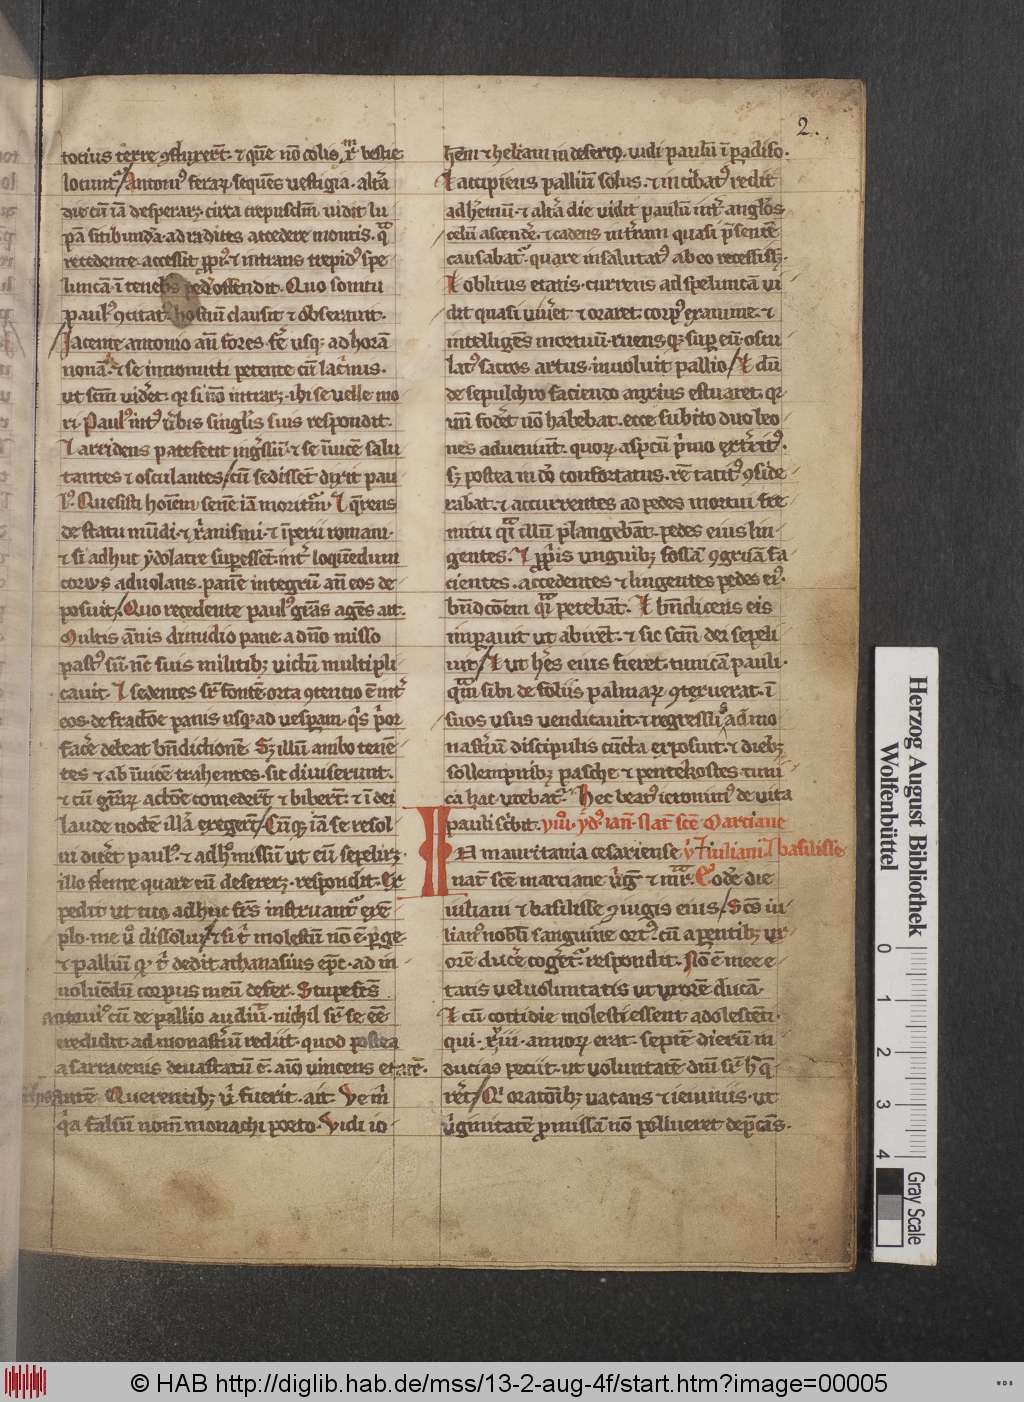 2.
tocius terre ꝯfluxer̄t. ⁊ que nō colis xpm bestie
locunt᷑ / Antoni᷒ feraꝝ sequēs uestigia. alt̄a
die cū iā desperaꝝ circa crepusclm̄ uidit lu
pā sitibundā. ad radices accedere montis. q̄
recedente accessit ꝓpi᷒ ⁊ intrans trepid᷒ spe
luncā. ī teneb̄s ped᷒ offendit. Quo sonitu
paul᷒ ꝯcitat᷒ hostiū clausit ⁊ obserauit.
Jacente antonio an̄ fores fe͛ usq; ad horā
nonā. ⁊ se intromitti petente cū lac̄mis.
ut scm̄ uider̄t. qr si nō intrarꝫ. ibi se uelle mo
ri. Paul᷒ int᷒ u͛bis singl̄is suis respondit.
⁊ arridens patefecit ing͛ssū. ⁊ se īuicē salu
tantes ⁊ osculantes / cū sedissēt dixit pau
l᷒. Quesisti hoīem senē iā moritur̄. ⁊ q̄rens
de statu mūdi. ⁊ x͛anismi. ⁊ īperii romani.
⁊ si adhuc ydolatre supessent. int͛ loquendum
corws aduolans. panē integrū an̄ eos de
posuit / Quo recedente paul᷒ gr̄as agēs ait.
Multis ānis dimidio pane a dn̄o misso
past᷒ sū. nc̄ suis militibꝫ uictū multipli
cauit. ⁊ sedentes sr̄ fontē orta ꝯtentio ē int͛
eos. de fractōe panis usq; ad uespam. qͥs pͥor
fac͛e debeat bn̄dictionē. Sꝫ illū ambo tenē
tes ⁊ ab īuicē trahentes. sic diuiserunt.
⁊ cū gr̄aꝝ actōe comeder̄t ⁊ biber̄t. ⁊ ī dei
laude noctē illā egeger̄t / Cūq; iā se resol
ui dicer̄t paul᷒. ⁊ ad h᷒ missū ut eū sepelirꝫ
illo flente quare eū desererꝫ. respondit. Ex
pedit ut tuo adhuc fr̄s instruant᷑ exē
plo. me u͛ dissolui / ⁊ si t͛ molestū nō ē. p̱ge
⁊ palliū qd̄ t͛ dedit athanasius epc̄. ad in
uoluēdū corpus meū defer. Stupefcs̄
Antoni᷒ cū de pallio audiu͛. nichil sr̄ se eē
credidit. ad monast͛iū rediit. quod postea
a sarracenis deuastatū ē. aīo uincens etatē.
Querentibꝫ u͛ fuerit. ait. Ve m͛
qͥa falsū nom̄ monachi porto. Vidi io
hēm ⁊ heliam in deserto. uidi paulū ī paradiso.
⁊ accipiens palliū solus. ⁊ incibat᷒ rediit
ad h͛emū. ⁊ alt̄a die uidit paulū int͛ anglōs
celū ascend͛e. ⁊ cadens in t͛ram quasi p̄sentē
causabat᷑. quare insalutat᷒ ab eo recessissꝫ.
⁊ oblitus etatis. currens ad speluncā ui
dit quasi uiu͛et ⁊ oraret. corp᷒ exanime. ⁊
intelligēs mortuū. ruensqꝫ sup eū. oscu
lat᷒ sacros artus. inuoluit pallio / ⁊ dū
de sepulchro faciendo anxius estuaret. qr
un̄ fod͛et nō habebat. ecce subito duo leo
nes adueniūt. quoꝝ aspectū pͥmo ext͛rit᷒.
sꝫ postea in do͛ confortatus. rē tacit᷒ ꝯside
rabat. ⁊ accurrentes ad pedes mortui fre
mitu qͣ illū plangebāt. pedes eius lin
gentes. ⁊ ꝓpͥis unguibꝫ fossā ꝯgruā fa
cientes. accedentes ⁊ lingentes pedes ei᷒.
bn̄dcōem qͣ petebāt. ⁊ bn̄dicens eis
imp̱auit ut abirēt. ⁊ sic scm̄ dei sepeli
uit / ⁊ ut h͛es eius fieret. tunicā pauli.
quā sibi de foliis palmaꝝ ꝯtexuerat. ī
suos usus uendicauit. ⁊ regress᷒ ad mo
nast͛iū discipulis cuncta exposuit. ⁊ diebꝫ
sollempnibꝫ pasche ⁊ pentekostes. tuni
ca hac utebat᷑. Hec beat᷒ ieronim᷒ de uita
pauli sc͛bit. viij. yd᷒. ian̄. Nat̄ sce͛ Marciane
IN mauritania cesariense ⁊ iuliani ⁊ basilisse
nat̄ sce͛ marciane u͛ḡ ⁊ mr̄. Eode͛ die
iuliani ⁊ basilisse ꝯiugis eius / Scs̄ iu
lian᷒ nobili sanguine ort᷒. cū a parentibꝫ ux
orē duc͛e coger̄t᷑. respondit. Nō ē mee e
tatis uel uoluntatis ut uxorē ducā.
⁊ cū cottidie molesti essent adolescēti.
qui. xviij. annoꝝ erat. septē dierū in
ducias peciit. ut uoluntatē dn̄i sr̄ h᷒ q̄
rer̄t / Qi orationibꝫ uacans ⁊ ieiuniis. ut
u͛ginitatē ꝓmissā nō pollueret dep̄cās.
Herzog August Bibliothek
Wolfenbüttel
0 1 2 3 4
Gray Scale
© HAB http://diglib.hab.de/mss/13-2-aug-4f/start.htm?image=00005